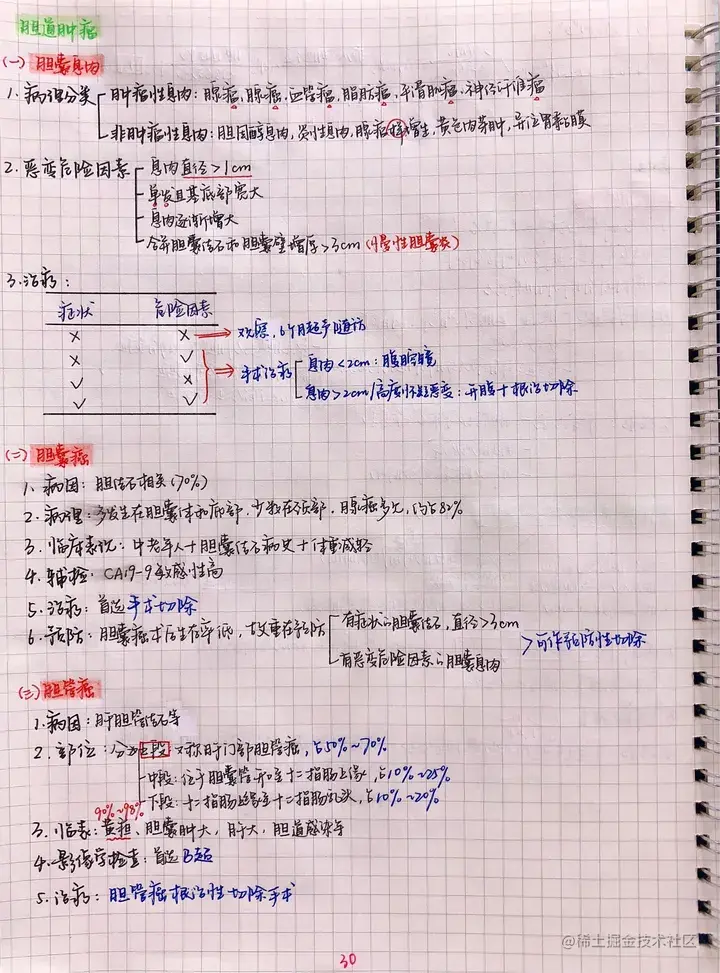 胆道肿瘤
(一) 胆囊息肉
1. 病理分类 肿瘤性息肉：腺瘤，腺癌，血管瘤，脂肪瘤，平滑肌瘤，神经纤维瘤
非肿瘤性息肉：胆固醇息肉，炎性息肉，腺瘤样增生，黄色肉芽肿，异位胃黏膜
2. 恶变危险因素 息肉直径>1cm
单发且基底部宽大
息肉逐渐增大
合并胆囊结石和胆囊壁增厚>3cm (慢性胆囊炎)
3. 治疗：
症状 危险因素
× × → 观察，6个月超声随访
× ✓
✓ ×
✓ ✓
手术治疗 息肉<2cm：腹腔镜
息肉>2cm/高度怀疑恶变：开腹+根治切除
(二) 胆囊癌
1. 病因：胆结石相关(70%)
2. 病理：多发生在胆囊体和底部，少数在颈部，腺癌多见，约占82%
3. 临床表现：中老年人+胆囊结石病史+体重减轻
4. 辅检：CA19-9敏感性高
5. 治疗：首选手术切除
6. 预防：胆囊癌术后生存率低，故重在预防 有症状的胆囊结石，直径>3cm
有恶变危险因素的胆囊息肉
>可作预防性切除
(三) 胆管癌
1. 病因：肝胆管结石等
2. 部位：分为上段 又称肝门部胆管癌，占50%~70%
中段：位于胆囊管开口至十二指肠上缘，占10%~25%
下段：十二指肠上缘至十二指肠乳头，占10%~20%
90%~98%
3. 临表：黄疸、胆囊肿大，肝大，胆道感染等
4. 影像学检查：首选B超
5. 治疗：胆管癌根治性切除手术
30
@稀土掘金技术社区